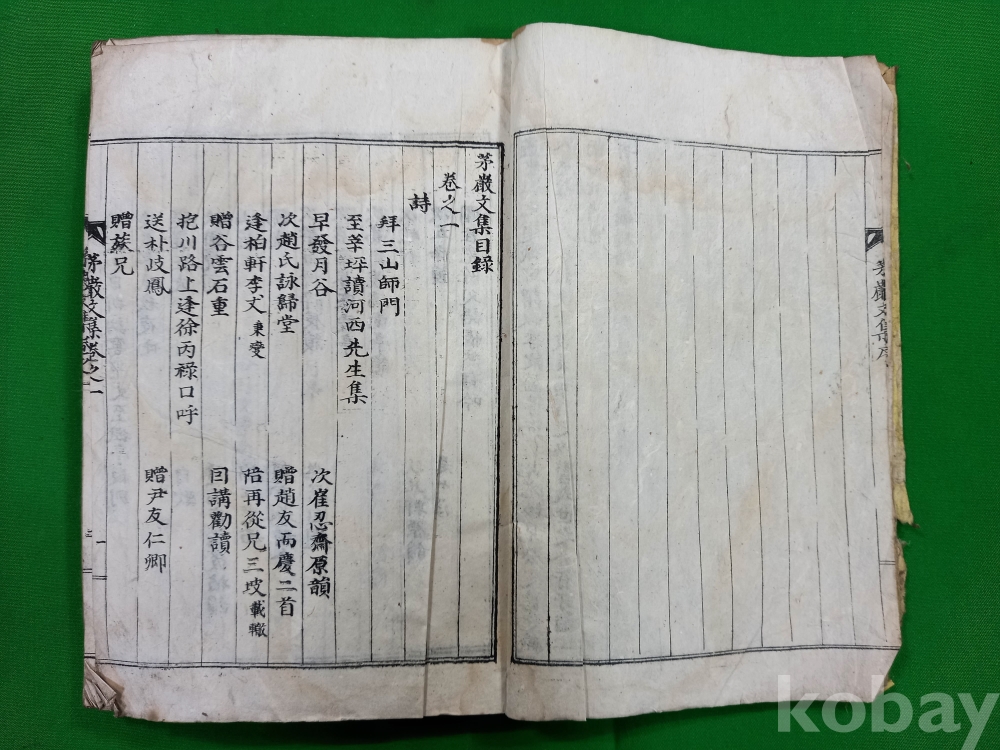 茅巖文集序
茅巖文集目錄
卷之一
詩
拜三山師門
至莘坪讀河西先生集
早發月谷
次崔忍齋原韻
次趙氏詠歸堂
贈趙友雨慶二首
逢柏軒李丈秉燮
陪再從兄三坡載轍
贈谷雲石重
回講勸讀
抱川路上逢徐丙祿口呼
送朴岐鳳
贈尹友仁卿
贈蘇兄
茅巖文集卷之一
上 一
kobay